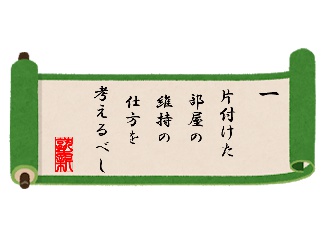 一
片付けた
部屋の
維持の
仕方を
考えるべし